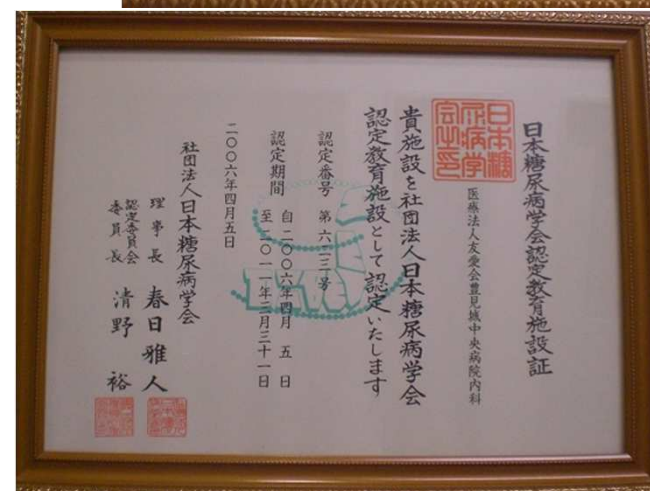 日本糖尿病学会認定教育施設証
日本糖
尿病学
会之印
医療法人友愛会豊見城中央病院内科
貴施設を社団法人日本糖尿病学会
認定教育施設として認定いたします
認定番号 第六二三号
認定期間 自 二〇〇六年四月 五 日
至 二〇一一年三月三十一日
二〇〇六年四月五日
社団法人日本糖尿病学会
理事長 春日雅人
認定委員会
委員長 清野 裕